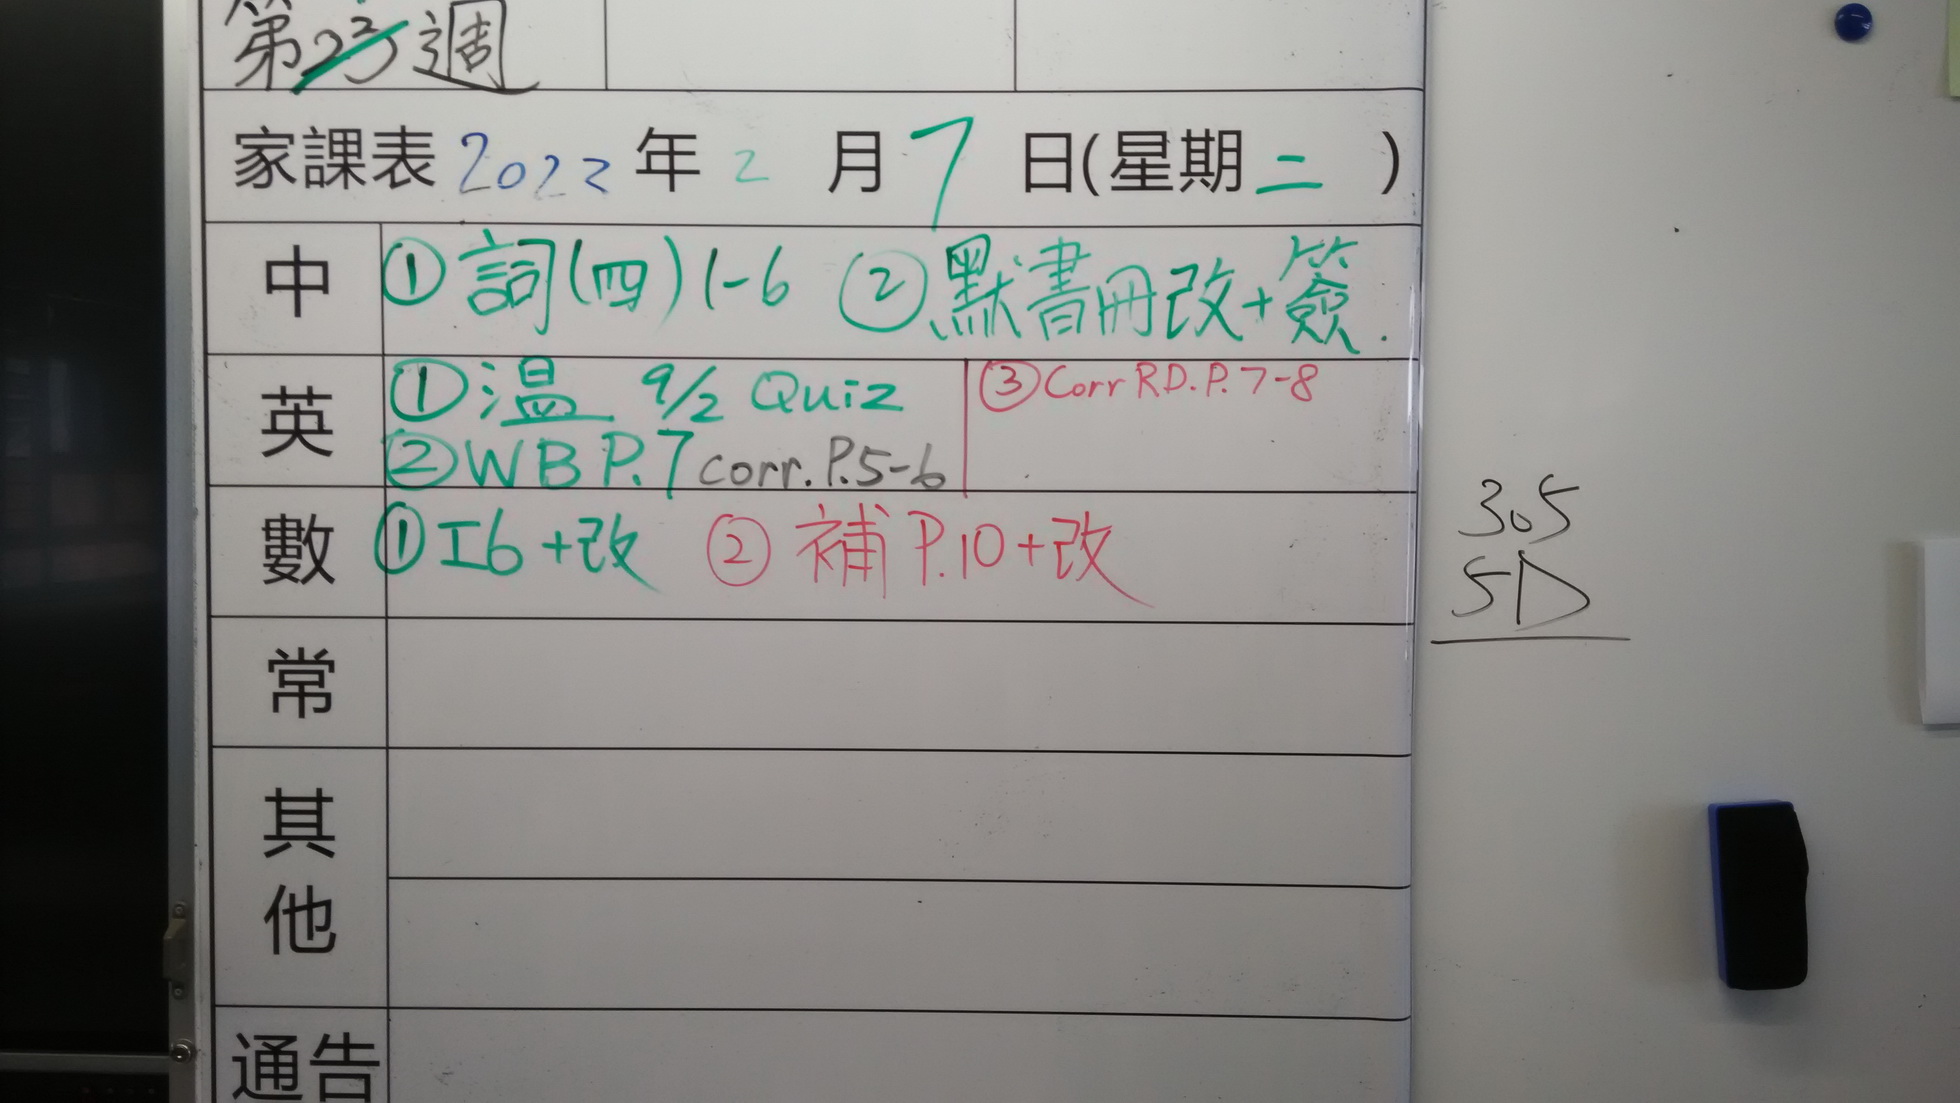 第23週
家課表 2022 年 2 月 7 日(星期二)
中 ① 詞(四) 1-6 ② 默書冊改+簽.
英 ① 温 9/2 Quiz ③ Corr RD. P. 7-8
② WB P.7 corr. P.5-6
數 ① I6 +改 ② 補 P.10+改
常
其他
通告
305
5D